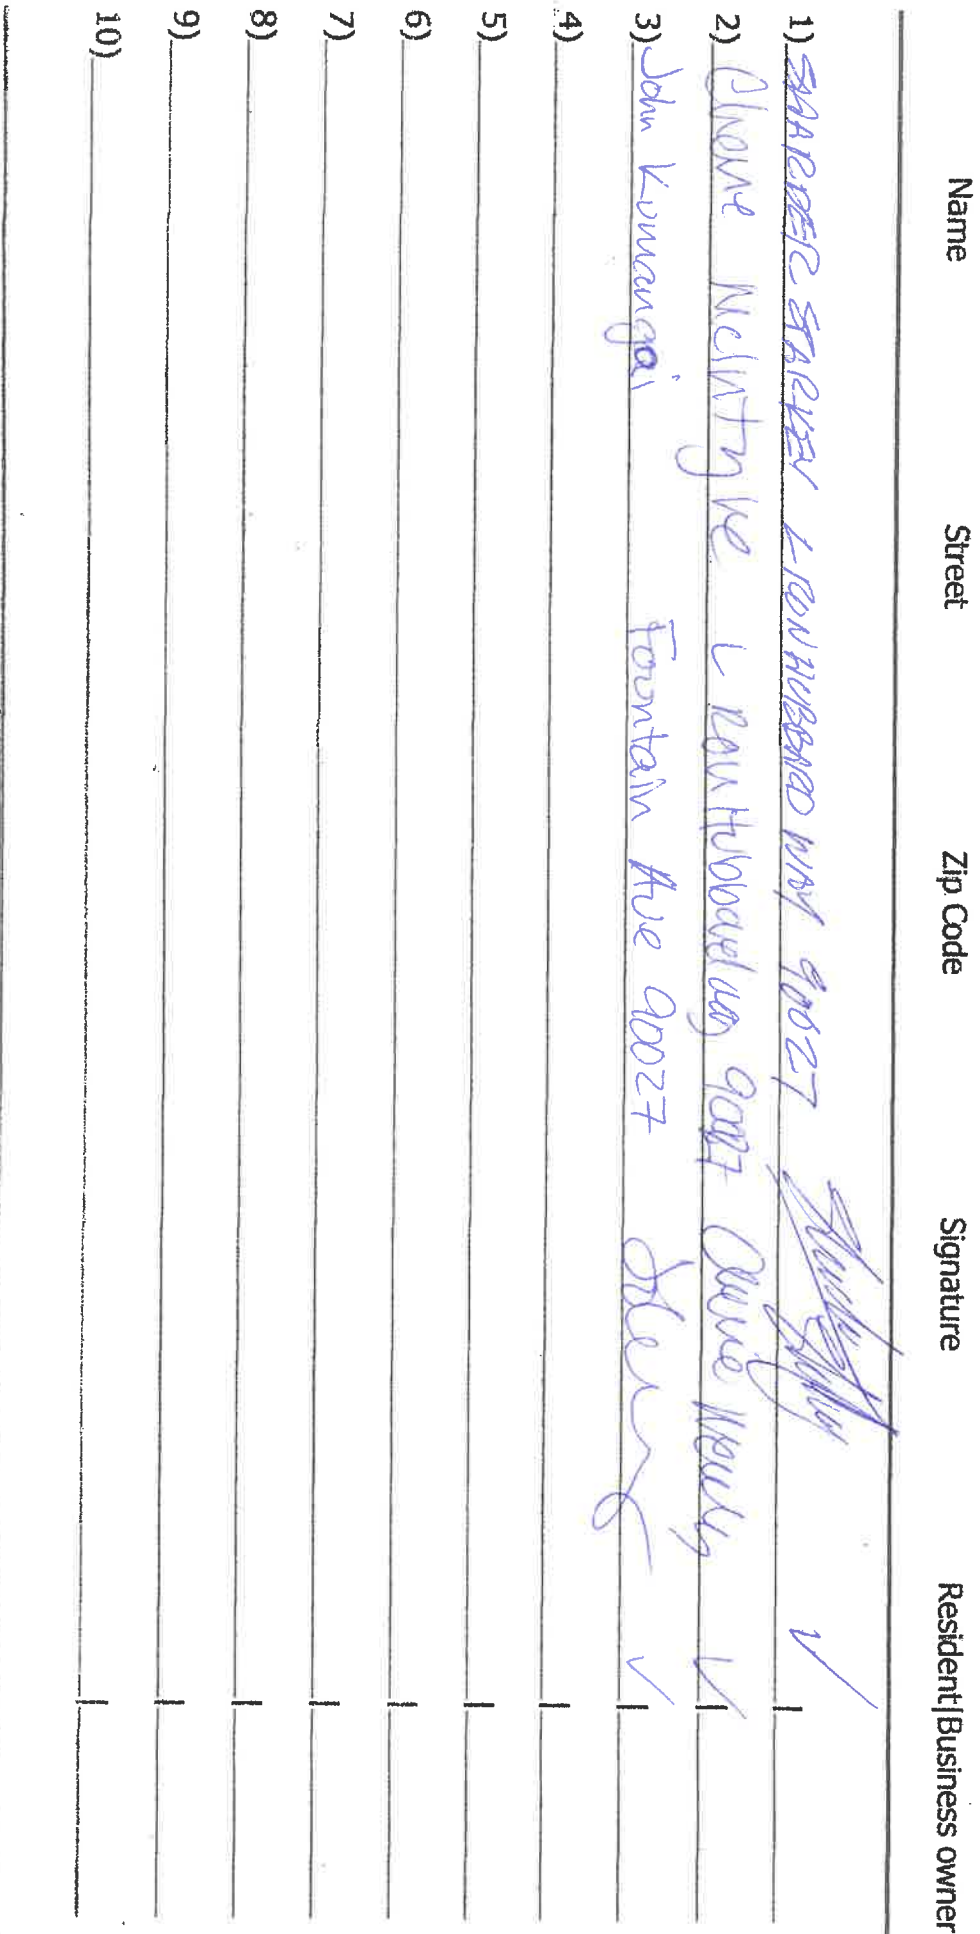 Name Street Zip Code Signature Resident|Business owner
1) STARKEY L-RON HUBBARD WAY 90027
2) McIntyre L Ron Hubbard way 90027
3) John Kumangai Fountain Ave 90027
4)
5)
6)
7)
8)
9)
10)